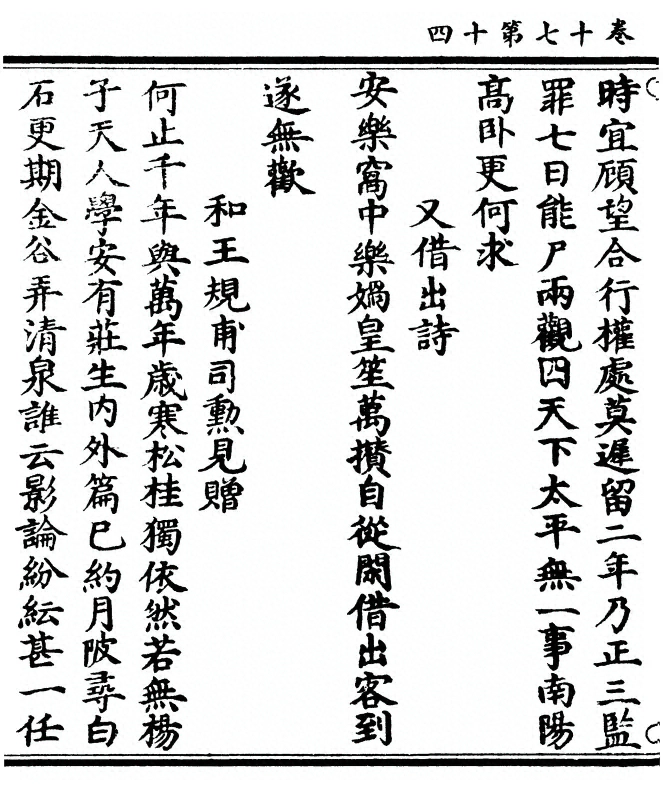 卷十七第十四
時宜顧望合行權處莫遲留二年乃正三監
罪七日能尸兩觀四天下太平無一事南陽
高卧更何求
又借出詩
安樂窩中樂媧皇笙萬攅自從閑借出客到
遂無歡
和王規甫司勲見贈
何止千年與萬年歲寒松桂獨依然若無楊
子天人學安有莊生内外篇巳約月陂尋白
石更期金谷弄清泉誰云影論紛紜甚一任